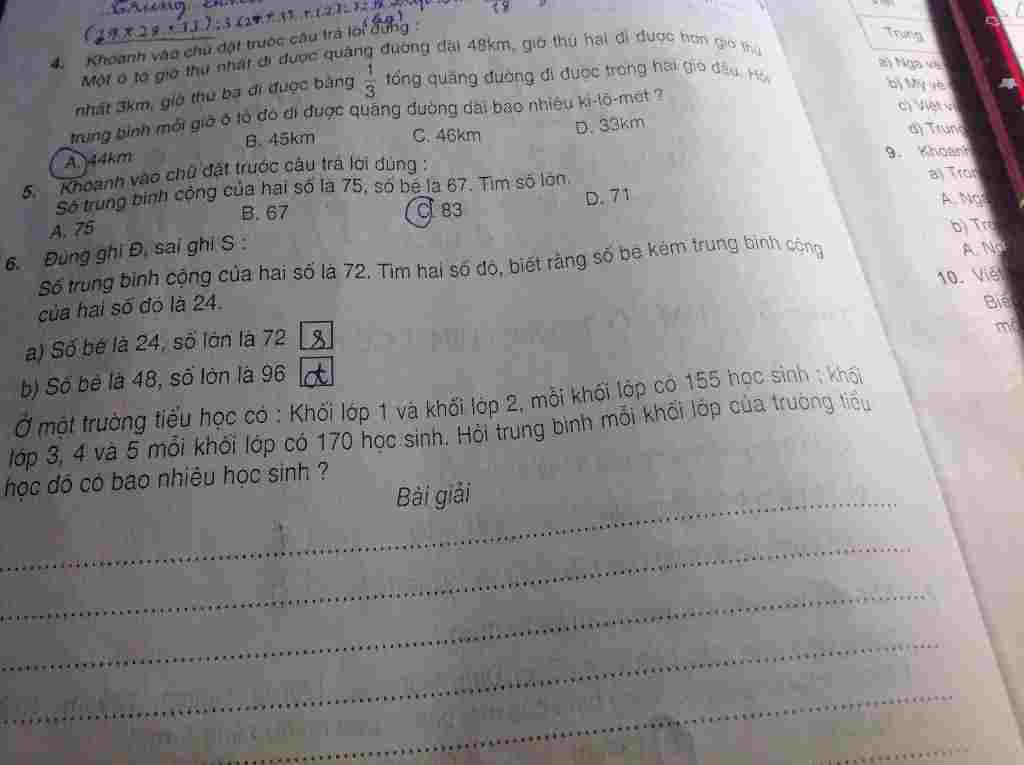 4. Khoanh vào chữ đặt trước câu trả lời đúng :
Một ô tô giờ thứ nhất đi được quãng đường dài 48km, giờ thứ hai đi được hơn giờ thứ
nhất 3km, giờ thứ ba đi được bằng 1/3 tổng quãng đường đi được trong hai giờ đầu. Hỏi
trung bình mỗi giờ ô tô đó đi được quãng đường dài bao nhiêu ki-lô-mét ?
A. 44km B. 45km C. 46km D. 33km
5. Khoanh vào chữ đặt trước câu trả lời đúng :
Số trung bình cộng của hai số là 75, số bé là 67. Tìm số lớn.
A. 75 B. 67 C. 83 D. 71
6. Đúng ghi Đ, sai ghi S :
Số trung bình cộng của hai số là 72. Tìm hai số đó, biết rằng số bé kém trung bình cộng
của hai số đó là 24.
a) Số bé là 24, số lớn là 72 S
b) Số bé là 48, số lớn là 96 đ
Ở một trường tiểu học có : Khối lớp 1 và khối lớp 2, mỗi khối lớp có 155 học sinh ; khối
lớp 3, 4 và 5 mỗi khối lớp có 170 học sinh. Hỏi trung bình mỗi khối lớp của trường tiểu
học đó có bao nhiêu học sinh ?
Bài giải
Trung
a) Nga
b) My
c) Việt
d) Trung
9. Khoanh
a)
A.
b)
A.
10. Viết